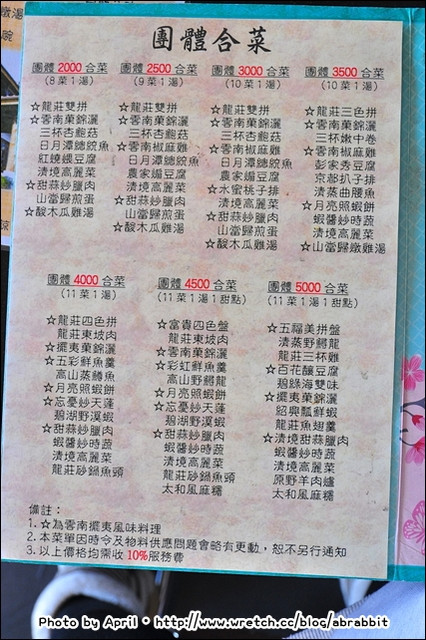 團體合菜
團體 2000 合菜
(8菜1湯)
☆龍莊雙拼
☆雲南菓錦灑
三杯杏鮑菇
日月潭總統魚
紅燒蝦豆腐
清境高麗菜
☆甜蒜炒臘肉
山當歸煎蛋
☆酸木瓜雞湯
團體 2500 合菜
(9菜1湯)
☆龍莊雙拼
☆雲南菓錦灑
三杯杏鮑菇
☆雲南椒麻雞
日月潭總統魚
農家媚豆腐
清境高麗菜
☆甜蒜炒臘肉
山當歸煎蛋
☆酸木瓜雞湯
團體 3000 合菜
(10菜1湯)
☆龍莊雙拼
☆雲南菓錦灑
三杯杏鮑菇
☆雲南椒麻雞
日月潭總統魚
農家媚豆腐
☆水蜜桃子排
清境高麗菜
☆甜蒜炒臘肉
山當歸煎蛋
☆酸木瓜雞湯
團體 3500 合菜
(10菜1湯)
☆龍莊三色拼
☆雲南菓錦灑
三杯嫩中卷
☆雲南椒麻雞
彭家秀豆腐
京都扒子排
清蒸曲腰魚
☆月亮照蝦餅
蝦醬炒時蔬
清境高麗菜
☆山當歸燉雞湯
團體 4000 合菜
(11菜1湯)
☆龍莊四色拼
龍莊東坡肉
☆擺夷菓錦灑
☆五彩鮮魚羹
高山蒸鱒魚
☆月亮照蝦餅
☆忘憂炒天蓬
碧湖野漠蝦
☆甜蒜炒臘肉
蝦醬炒時蔬
清境高麗菜
龍莊砂鍋魚頭
團體 4500 合菜
(11菜1湯1甜點)
☆富貴四色盤
龍莊東坡肉
☆雲南菓錦灑
☆彩虹鮮魚羹
高山野鱘龍
☆月亮照蝦餅
☆忘憂炒天蓬
碧湖野漠蝦
☆甜蒜炒臘肉
蝦醬炒時蔬
清境高麗菜
龍莊砂鍋魚頭
太和風麻糬
團體 5000 合菜
(11菜1湯1甜點)
☆五福美拼盤
清蒸野鱘龍
龍莊三杯雞
☆百花釀豆腐
碧綠海雙味
☆擺夷菓錦灑
紹興瓢鮮蝦
龍莊魚翅羹
☆清境甜蒜臘肉
蝦醬炒時蔬
清境高麗菜
原野羊肉爐
太和風麻糬
備註：
1.☆為雲南擺夷風味料理
2.本菜單因時令及物料供應問題會略有更動，恕不另行通知
3.以上價格均需收10%服務費
Photo by April • http://www.wretch.cc/blog/abrabbit